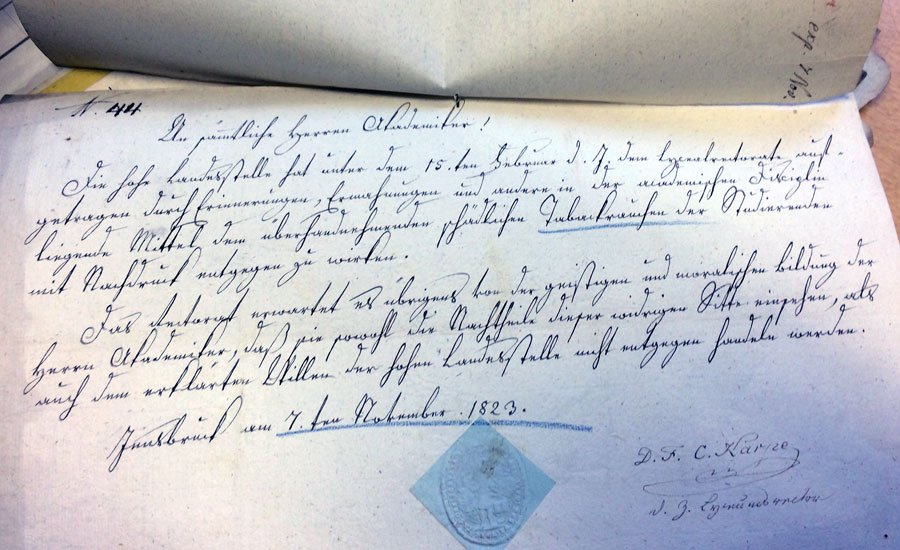 exp. 7 Nov.
N. 44
An sämmtliche Herren Akademiker!
Die hohe Landesstelle hat unter dem 15.ten Februar d. J. dem Lyzealrectorate auf-
getragen durch Erinnerungen, Ermahnungen und andere in der academischen Disciplin
liegende Mittel dem überhandnehmenden schädlichen Tabakrauchen der Studierenden
mit Nachdruck entgegen zu wirken.
Das Rectorat erwartet es übrigens von der geistigen und moralischen Bildung der
Herrn Akademiker, daß sie sowohl die Nachtheile dieser widrigen Sitte einsehen, als
auch dem erklärten Willen der hohen Landesstelle nicht entgegen handeln werden.
Innsbruck am 7.ten November 1823.
D. F. C. Karpe
d. Z. Lyceumsrector